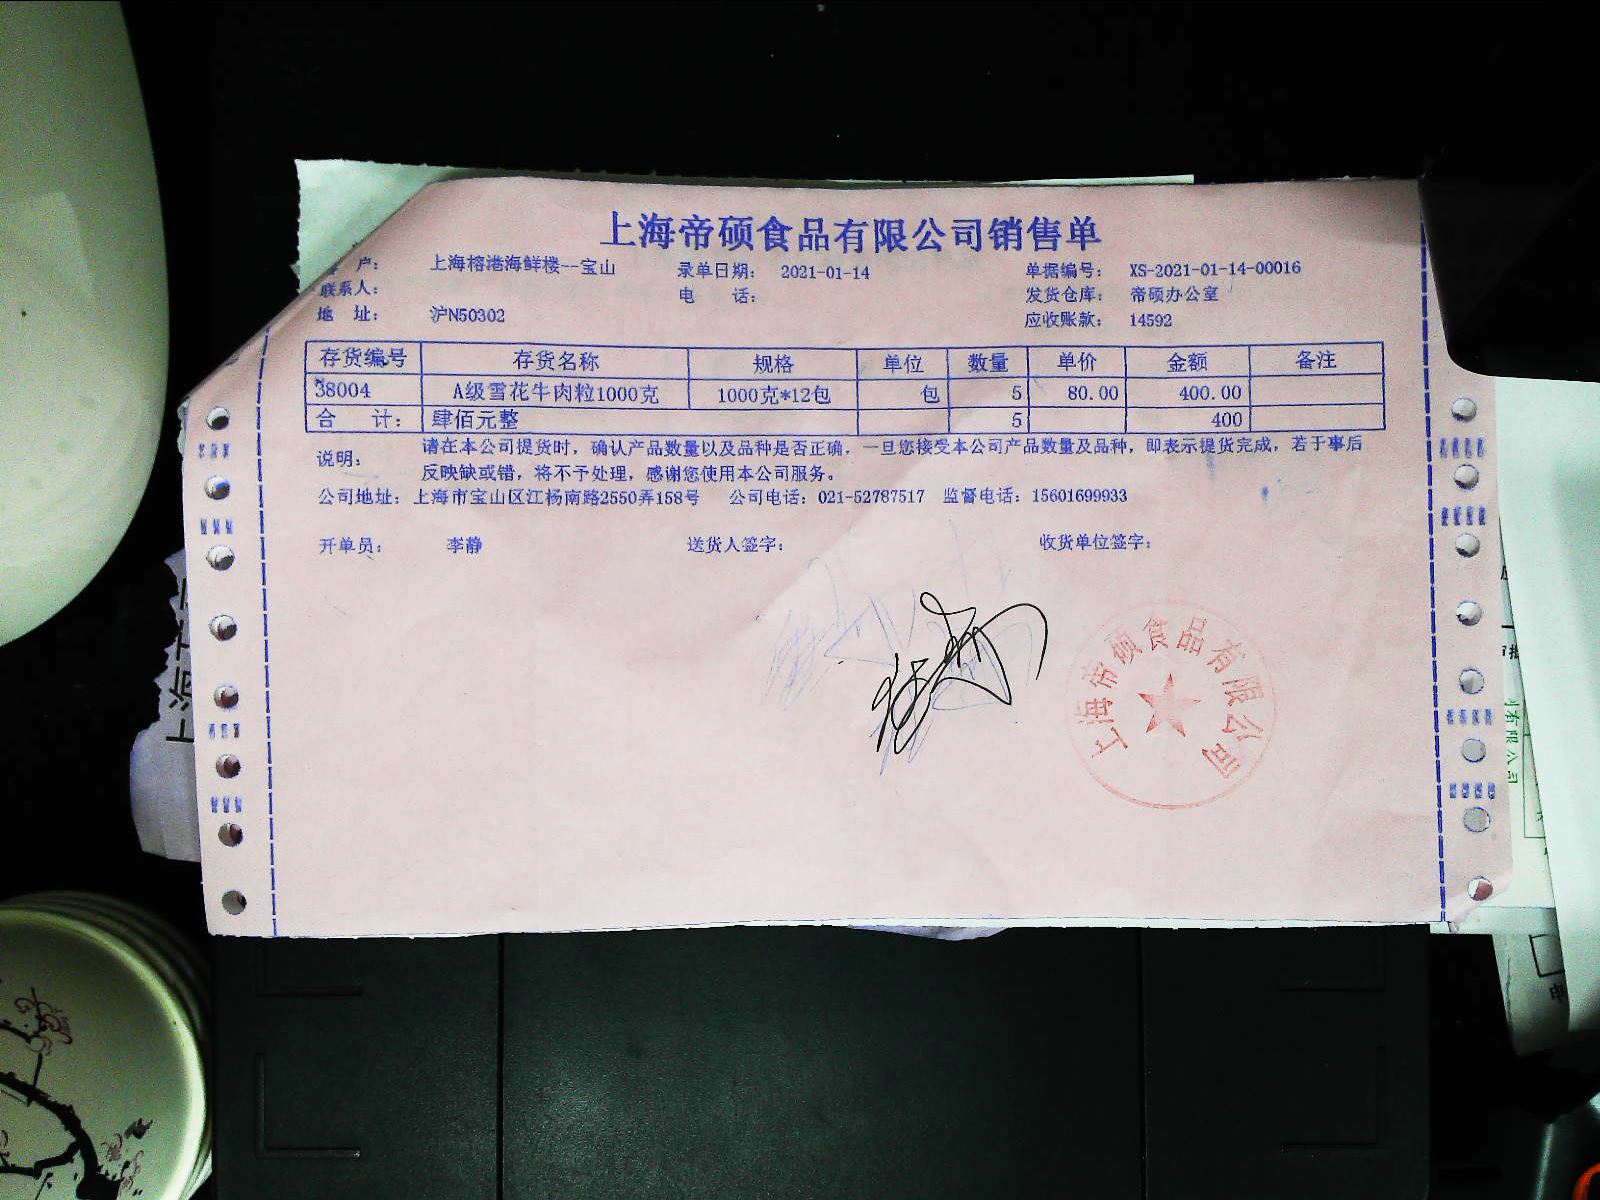 上海帝硕食品有限公司销售单
户： 上海榕港海鲜楼--宝山 录单日期： 2021-01-14 单据编号： XS-2021-01-14-00016
联系人： 电 话： 发货仓库： 帝硕办公室
地 址： 沪N50302 应收账款： 14592
存货编号 存货名称 规格 单位 数量 单价 金额 备注
38004 A级雪花牛肉粒1000克 1000克*12包 包 5 80.00 400.00
合 计： 肆佰元整 5 400
说明： 请在本公司提货时，确认产品数量以及品种是否正确，一旦您接受本公司产品数量及品种，即表示提货完成，若于事后
反映缺或错，将不予处理，感谢您使用本公司服务。
公司地址：上海市宝山区江杨南路2550弄158号 公司电话：021-52787517 监督电话：15601699933
开单员： 李静 送货人签字： 收货单位签字：
上海帝硕食品有限公司
上海
有限公司